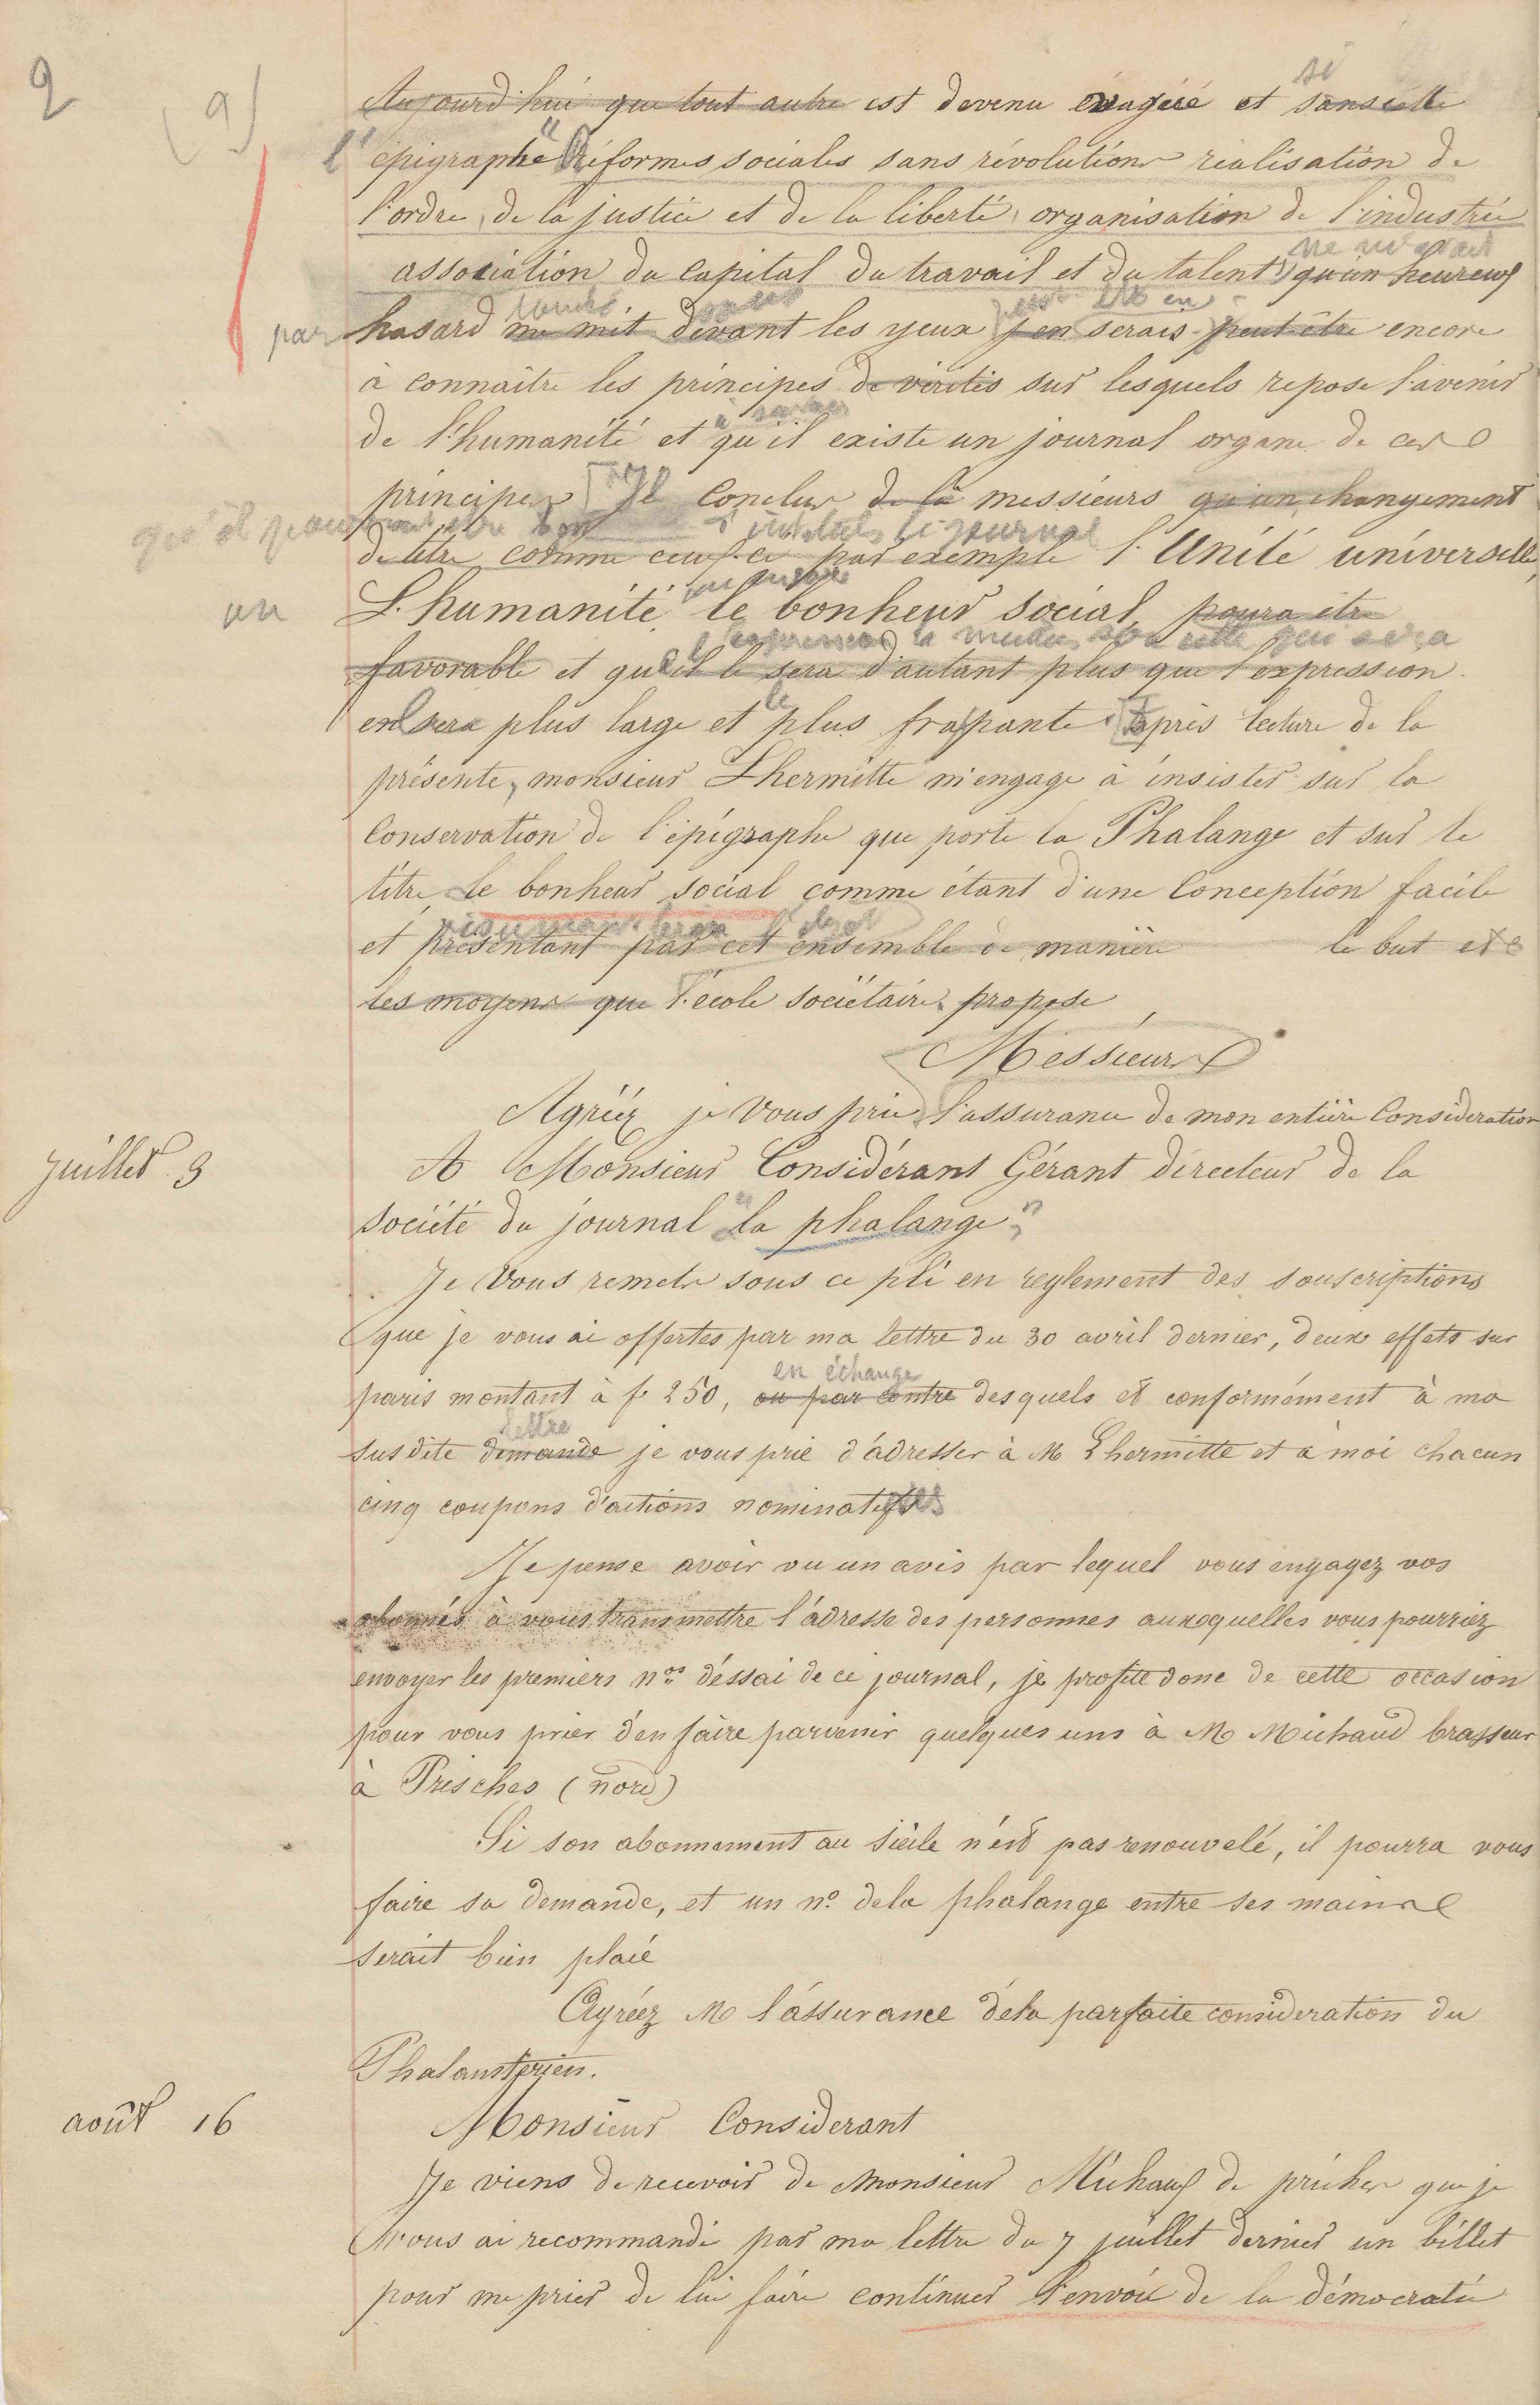 2
(9)
si
Aujourd'hui que tout autre est devenu exagéré et sans cette
l'épigraphe "Réformes sociales sans révolutions réalisation de
l'ordre, de la justice et de la liberté, organisation de l'industrie
ne m'avait
association du Capital du travail et du talent" qu'un heureux
touché
par hasard me mit devant les yeux j'en serais peut-être encore
à connaître les principes de vérités sur lesquels repose l'avenir
de l'humanité et qu'il existe un journal organe de ces
principes Je Conclus de là messieurs qu'un changement
s'intitulat le journal
de titre comme ceux-ci par exemple l'Unité universelle,
ou
L'humanité, le bonheur social, poura être
favorable et qu'il le sera d'autant plus que l'expression
le
en sera plus large et plus frapante. après lecture de la
présente, monsieur Lhermitte m'engage à insister sur la
Conservation de l'épigraphe que porte la Phalange et sur le
titre le bonheur social comme étant d'une Conception facile
et présentant par cet ensemble de manière le but et
les moyens que l'école sociétaire propose
Messieurs
Agréez je vous prie l'assurance de mon entière Considération
juillet 9
A Monsieur Considérant Gérant directeur de la
société du journal "la phalange"
Je vous remets sous ce pli en reglement des souscriptions
que je vous ai offertes par ma lettre du 30 avril dernier, deux effets sur
en échange
paris montant à f. 250, ou par contre desquels et conformément à ma
lettre
susdite demande je vous prie d'adresser à M Lhermitte et à moi chacun
cinq coupons d'actions nominatifs
Je pense avoir vu un avis par lequel vous engagez vos
abonnés à vous transmettre l'adresse des personnes auxquelles vous pourriez
envoyer les premiers nos d'éssai de ce journal, je profite donc de cette occasion
pour vous prier d'en faire parvenir quelques uns à M Michaud brasseur
à Prisches (nord)
Si son abonnement au siècle n'est pas renouvelé, il pourra vous
faire sa demande, et un no. dela phalange entre ses mains
serait bien placé
Agréez M l'assurance dela parfaite consideration du
Phalanstérien.
août 16
Monsieur Considerant
Je viens de recevoir de Monsieur Michaux de prisches que je
vous ai recommandé par ma lettre du 7 juillet dernier un billet
pour me prier de lui faire continuer l'envoie de la démocratie